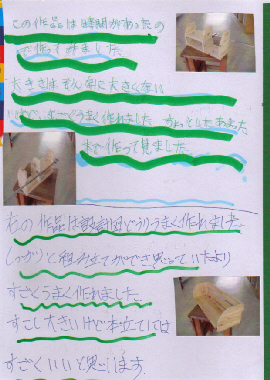 この作品は時間があったの
で作ってみました。
大きさはそんなに大きくない
けど、すごくうまく作れました。ちょっとしたあまった
木で作って見ました。
右の作品は設計図どうりうまく作れました。
しっかりと組み立てができ思っていたより
すごくうまく作れました。
すこし大きいけど本立てにては
すごくいいと思います。